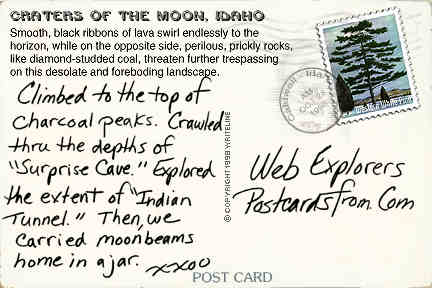 CRATERS OF THE MOON, IDAHO
Smooth, black ribbons of lava swirl endlessly to the
horizon, while on the opposite side, perilous, prickly rocks,
like diamond-studded coal, threaten further trespassing
on this desolate and foreboding landscape.
Climbed to the top of
charcoal peaks. Crawled
thru the depths of
"Surprise Cave." Explored
the extent of "Indian
Tunnel." Then, we
carried moonbeams
home in a jar. xxoo
© COPYRIGHT 1998 WRITELINE
Web Explorers
PostcardsFrom.Com
POST CARD